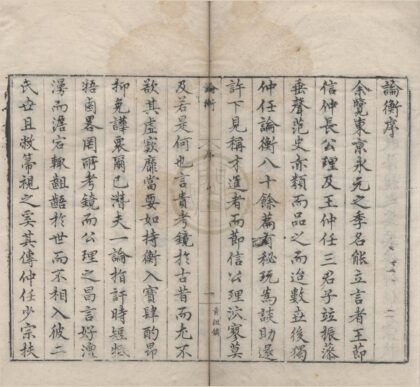 論衡序
余覽東京永元之季名能立言者王節
信仲長公理及王仲任三君子竝振藻
垂聲范史亦類而品之而迨數世後獨
仲任論衡八十餘篇有秘玩為談助還
許下見稱才進者而節信公理泬寥莫
及若是何也言貴考鏡於古昔而尤不
論衡 序 一
欲其虛靡當要如持衡入寶肆酌昂
抑免譁衆爾已潛夫一論指訐時短
牾鹵畧罔所考鏡而公理之昌言好澶
漫而澹宕輙齟齬於世而不相入彼二
氏世且敝帚視之奚其傳仲任少宗扶